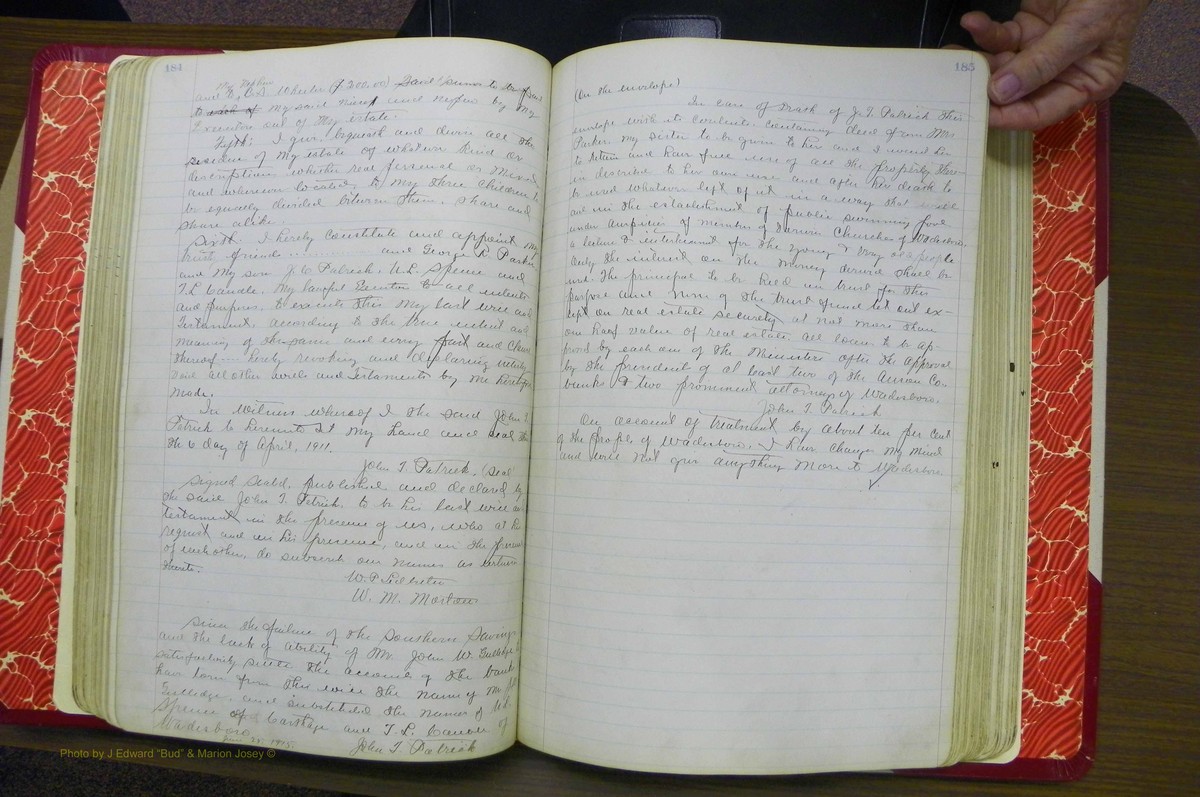 184
My nephew
and to C. S. Wheeler ($300.00) Said sums to be paid
to each of my said niece and nephew by my
Executors out of my estate.
Fifth: I give, bequeath and devise all the
residue of my estate of whatever kind or
description whether real personal or Mixed
and wherever located, to my three children to
be equally divided between them, share and
share alike.
Sixth. I hereby constitute and appoint my
trust friends and George R. Parker
and my son J. C. Patrick. U. L. Spence and
T. L. Caudle. My lawful Executors to all intents
and purposes, to execute this my last will and
Testament, according to the true intent and
meaning of the same and every part and clause
thereof — hereby revoking and declaring utterly
void all other wills and testaments by me heretofore
made.
In Witness whereof I the said John T.
Patrick do hereunto set my hand and seal this
the 6 day of April, 1911.
John T. Patrick. (Seal)
Signed sealed, published and declared by
the said John T. Patrick, to be his last will and
testament in the presence of us, who at his
request and in his presence, and in the presence
of each other, do subscribe our names as witnesses
thereto.
W. P. Ledbetter
W. M. Morton
Since the failure of the Southern Savings
and the lack of ability of Mr. John W. Gulledge to
satisfactorily settle the accounts of the bank I
have torn from this will the name of Mr. John
Gulledge, and substituted the names of U. L.
Spence of Carthage and T. L. Caudle of
Wadesboro
June 25, 1915.
John T. Patrick
Photo by J Edward "Bud" & Marion Josey ©
185
(On the envelope)
In case of death of J. T. Patrick this
envelope with its contents containing deed from Mrs.
Parker, my sister to be given to her and I want her
to retain and have free use of all the property there-
in described to her own use and after her death to
be used whatever left of it in a way that will
aid in the establishment of public swimming pool
under auspices of ministers of Churches of Wadesboro,
for the young & very old people
Only the interest on the money derived shall be
used. The principal to be held in trust for this
purpose and none of the trust fund let out ex-
cept on real estate security at not more than
one half value of real estate. All loans to be ap-
proved by each one of the Ministers after the approval
by the president of at least two of the Anson Co.
banks & two prominent attorneys of Wadesboro.
John T. Patrick
On account of treatment by about ten per cent
of the people of Wadesboro, I have changed my mind
and will not give anything more to Wadesboro